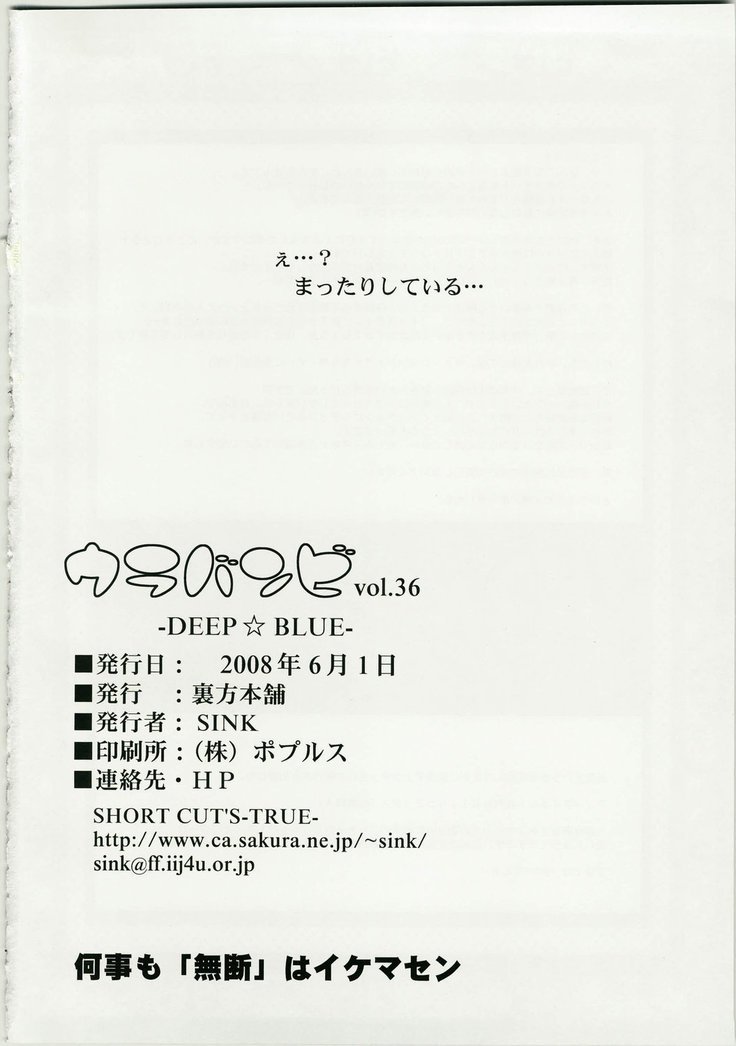 ぇ…？
まったりしている…
ウラバンビ vol.36
-DEEP☆BLUE-
■発行日： 2008年6月1日
■発行 ：裏方本舗
■発行者：SINK
■印刷所：（株）ポプルス
■連絡先・ＨＰ
SHORT CUT'S-TRUE-
http://www.ca.sakura.ne.jp/~sink/
sink@ff.iij4u.or.jp
何事も「無断」はイケマセン